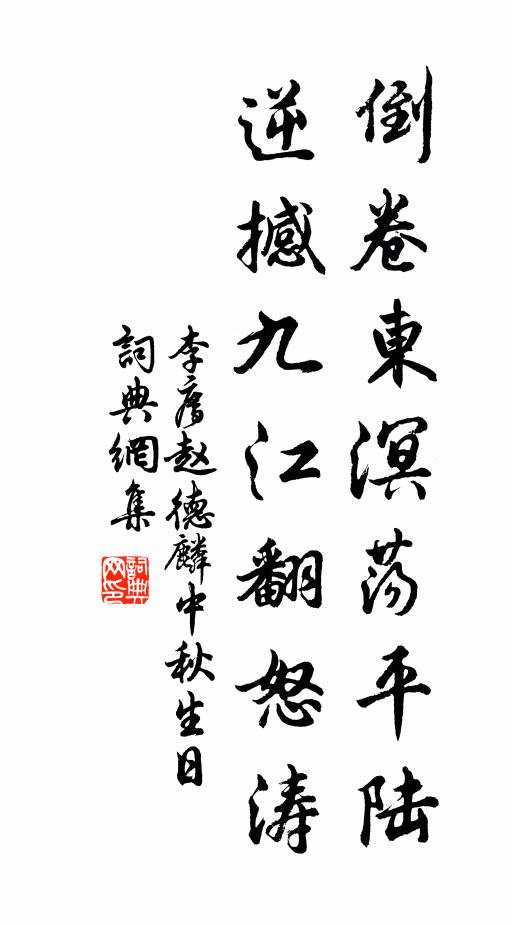 倒卷東溟荡平陆
逆撼九江翻怒涛
李廌赵德麟中秋生日
詞典網集
詞典網印